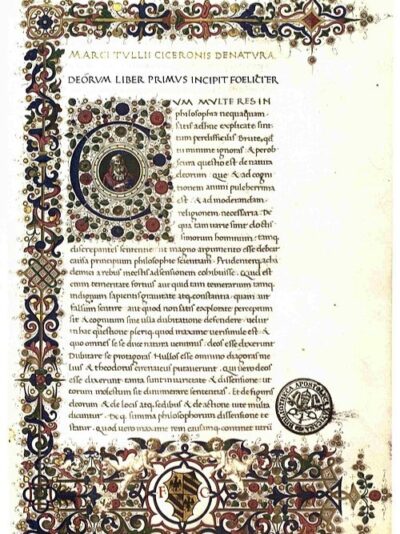 MARCI TULLII CICERONIS DE NATURA
DEORUM LIBER PRIMUS INCIPIT FOELICITER
CUM MULTE RES IN
philosophia nequaquam
satis adhuc explicate sint
tum perdifficilis Brute, qd
tu minime ignoras & perob
scura questio est de natura
deorum que & ad cogni
tionem animi pulcherrima
est & ad moderandam
religionem necessaria. De
qua tam varie sunt doctis
simorum hominum tamq
discrepantes sententie ut magno argumento esse debeat
causa principium philosophie scientiam. Prudenterq acha
demici a rebus incertis adsensionem cohibuisse. Quid est
enim temeritate fortius aut quid tam temerarium tamq
indignum sapientis gravitate atq constantia quam aut
falsum sentire aut quod non satis explorate perceptum
sit & cognitum sine ulla dubitatione defendere velut
in hac questione pleriq quod maxime verisimile est &
quo omnes se se duce natura venimus deos esse dixerunt
Dubitare se protagoras Nullos esse omnino diagoras me
lius & theodorus cirenaicus putaverunt. qui vero deos
esse dixerunt tanta sunt in varietate & dissensione ut
eorum molestum sit dinumerare sententias. Et de figuris
deorum & de locis atq sedibus & de actione vite multa
dicuntur Ex q. summa philosophorum dissensione te
statur. quod vero maxime rem causamq continet utrū
F C